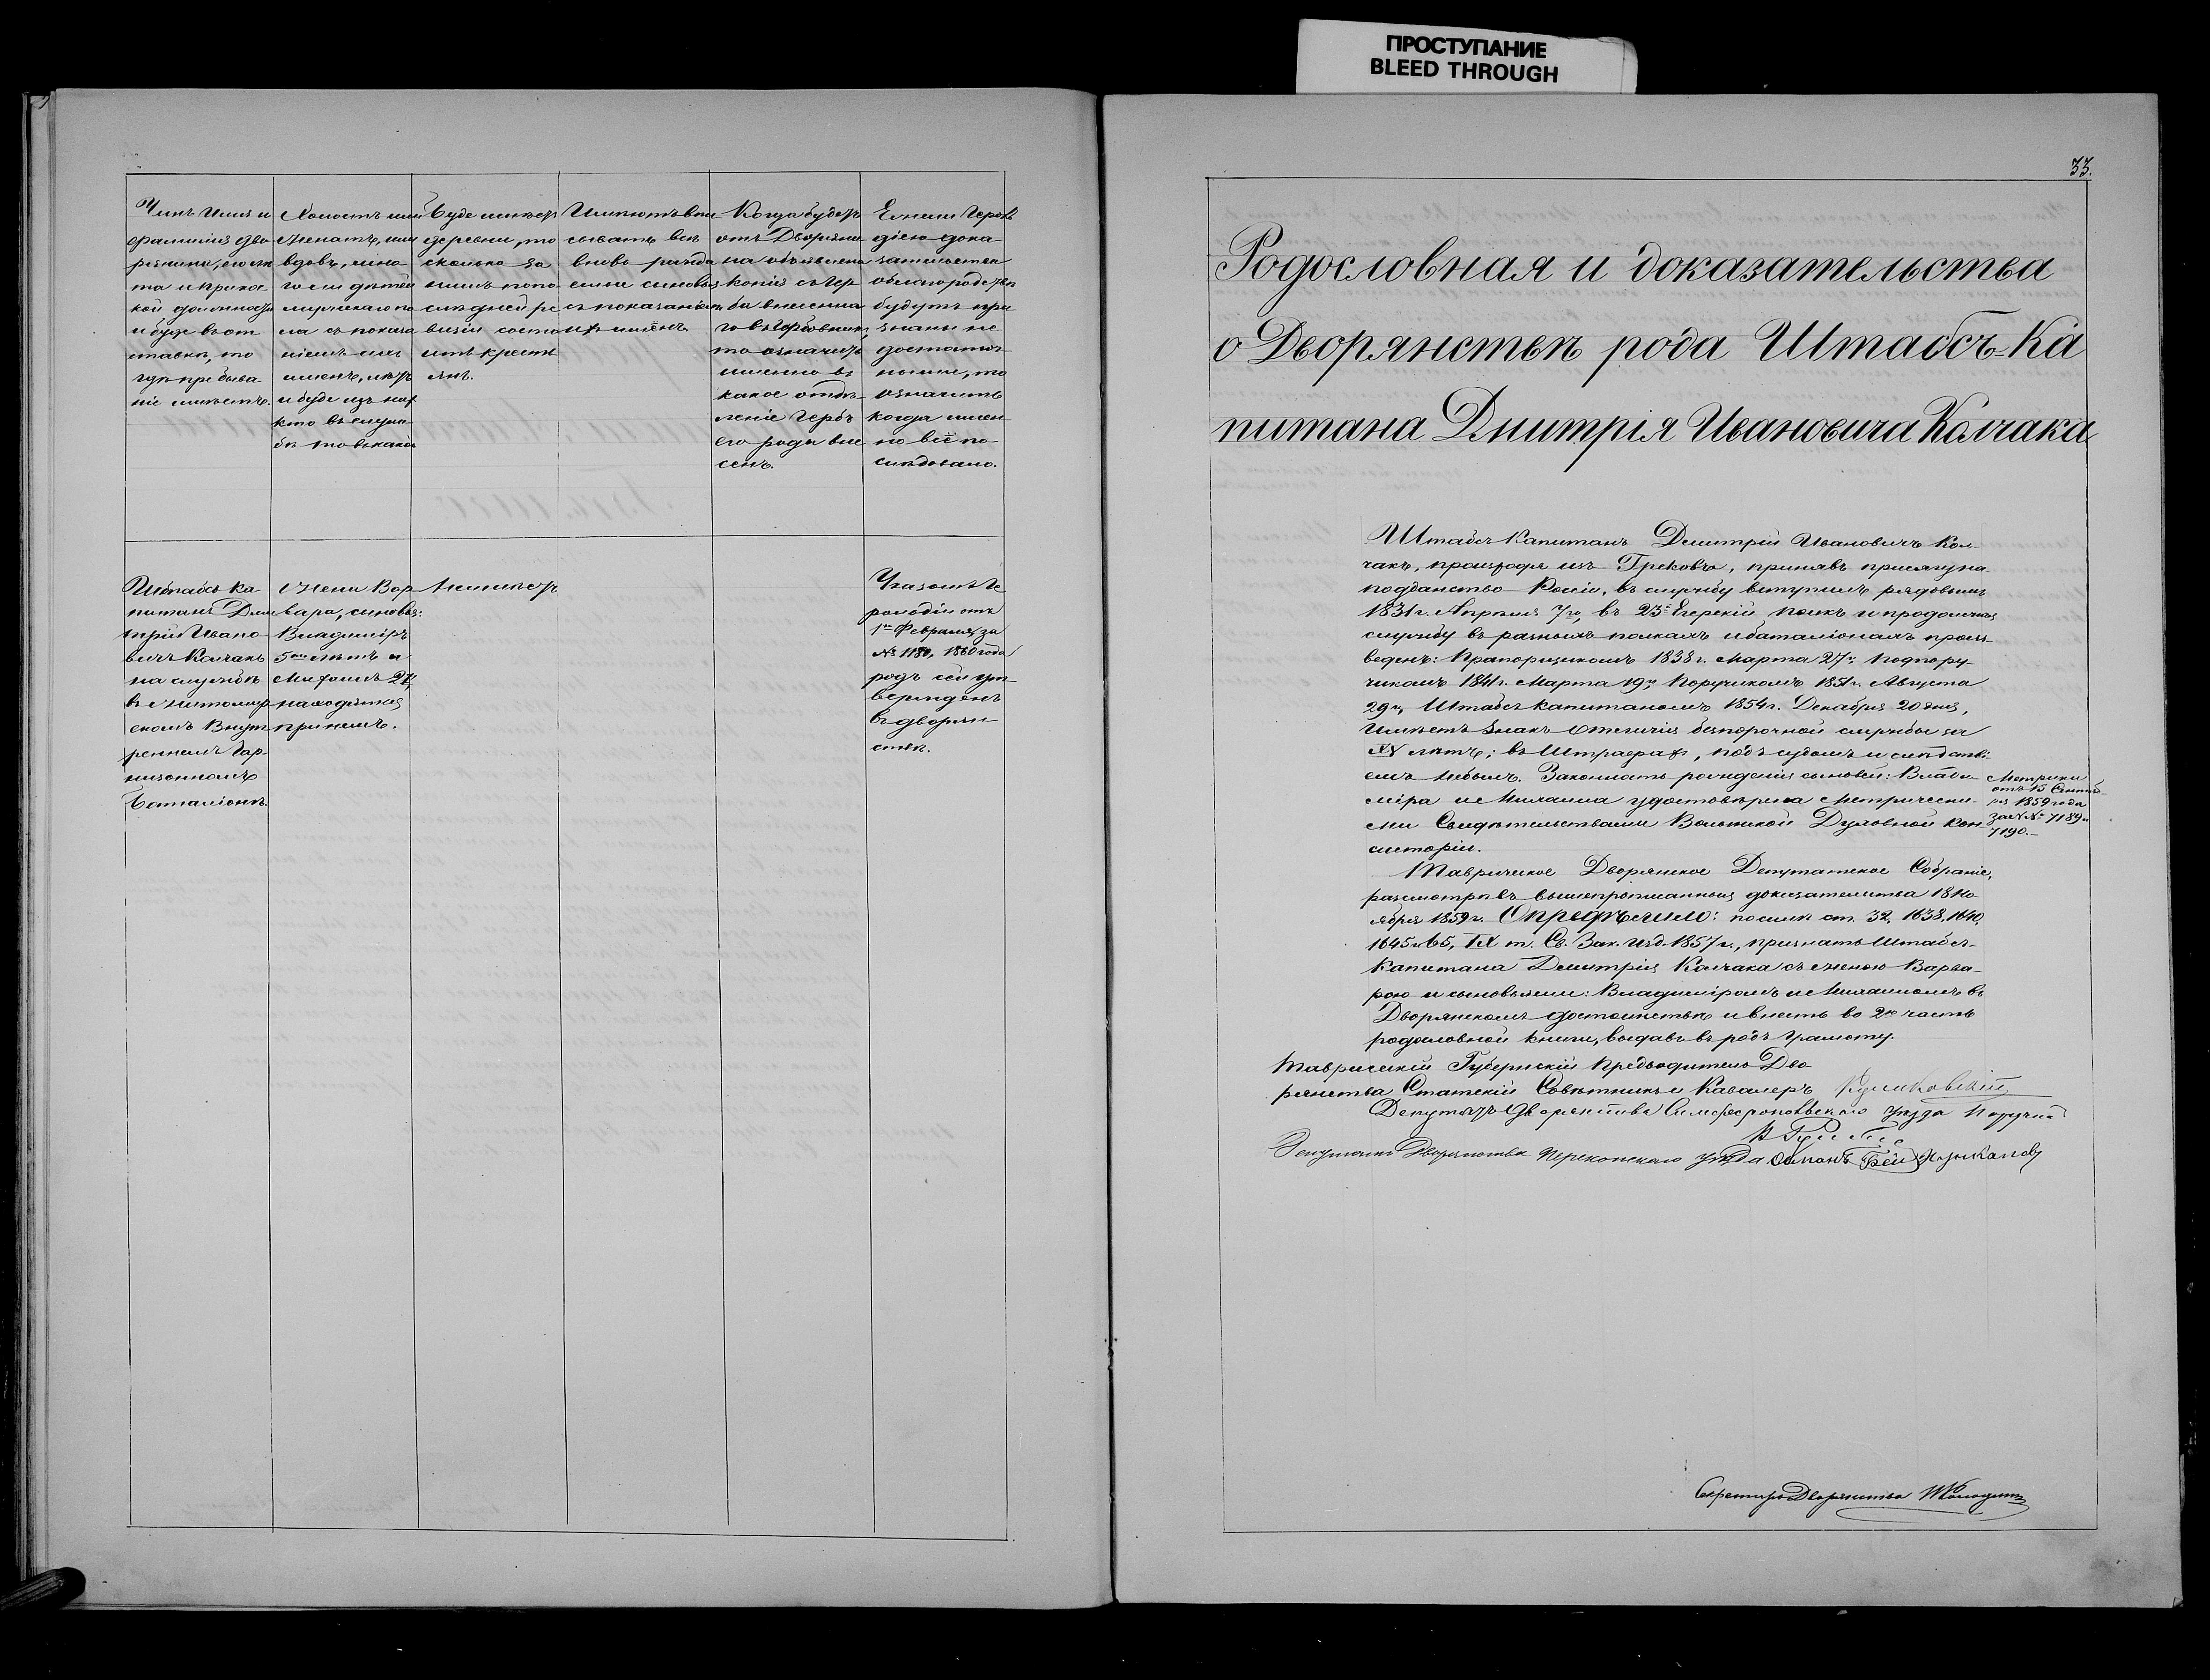 ПРОСТУПАНИЕ
BLEED THROUGH
Чинъ Имя и
фамилія дво
рянина, его лѣ
та и
кой должности
и буде въ от
ставкѣ, то
гдѣ пребыва
ніе имѣетъ.
Холостъ или
женатъ, или
вдовъ, мно
го ли дѣтей
мужескаго по
ла съ показа
ніемъ ихъ
именъ, лѣтъ
и буде изъ них
кто въ служ
бѣ то въ какой
Буде имѣетъ
деревни, то
сколько за
нимъ по по
слѣдней ре
визіи состо
итъ кресть
янъ.
Имѣютъ впи
сывать всѣ
вновь рожда
емые сыновья
съ показаніемъ
ихъ именъ.
Когда будетъ
отъ Дворяни
на объявлена
копія съ Гер
ба внесенна
го въ Гербовникъ,
то означить
именно въ
какое отдѣ
леніе Гербъ
его рода вне
сенъ.
Ежели Герол
діею дока
зательства
о благородствѣ
будутъ при
знаны не
достаточ
ными, то
означить
когда имен
но всё по
слѣдовало.
Штабсъ Ка
питанъ Дми
трій Ивано
вичъ Колчакъ
на службѣ
въ Житомир
скомъ Внут
реннемъ Гар
низонномъ
Баталіонѣ
Жена Вар
вара, сыновья:
Владиміръ
5ти лѣтъ и
2хъ
находятся
при немъ.
Неимѣетъ
Указомъ Ге
рольдіи отъ
1го Февраля за
№ 1180, 1860 года
родъ сей ут
вержденъ
въ дворян
ствѣ.
33.
Родословная и доказательства
о Дворянствѣ рода Штабсъ-Ка
питана Дмитрія Ивановича Колчака
Штабсъ Капитанъ Дмитрій Ивановичъ Кол-
чакъ, происходя изъ Грековъ, принявъ присягу на
подданство Россіи, въ службу вступилъ рядовымъ
1831 г. Апрѣля 7го, въ 23й Егерскій полкъ и продолжая
службу въ разныхъ полкахъ и баталіонахъ произ-
веденъ: Прапорщикомъ 1838 г. Марта 27го Подпору-
чикомъ 1841 г. Марта 19го Поручикомъ 1851 г. Августа
29го, Штабсъ капитаномъ 1854 г. Декабря 20 дня,
Имѣетъ Знакъ Отличія безпорочной службы за
XV лѣтъ; въ Штрафахъ, подъ судомъ и слѣдстві-
емъ небылъ. Законность рожденія сыновей: Влади-
міра и Михаила удостовѣрена Метрически-
ми Свидѣтельствами Волынской Духовной Кон-
систоріи.
Метрики
отъ 15 Сентяб-
ря 1859 года
за №№ 7189 и
7190.-
Таврическое Дворянское Депутатское Собраніе,
разсмотрѣвъ вышепрописанныя доказательства 18 Но-
ября 1859 г. Опредѣлило: по силѣ ст. 32, 1638, 1640,
1645 и 65, IX т. Св. Зак. изд. 1857 г., признать Штабсъ-
Капитана Дмитрія Колчака съ женою Варва-
рою и сыновьями: Владиміромъ и Михаиломъ въ
Дворянскомъ достоинствѣ и внесть во 2ю часть
родословной книги, выдавъ въ родъ грамоту.
Таврическій Губернскій Предводитель Дво-
рянства Статскій Совѣтникъ и Кавалеръ
Депутатъ Дворянства Симферопольскаго уѣзда Поручикъ
Депутатъ Дворянства Перекопскаго уѣзда Османъ Бей
Секретарь Дворянства